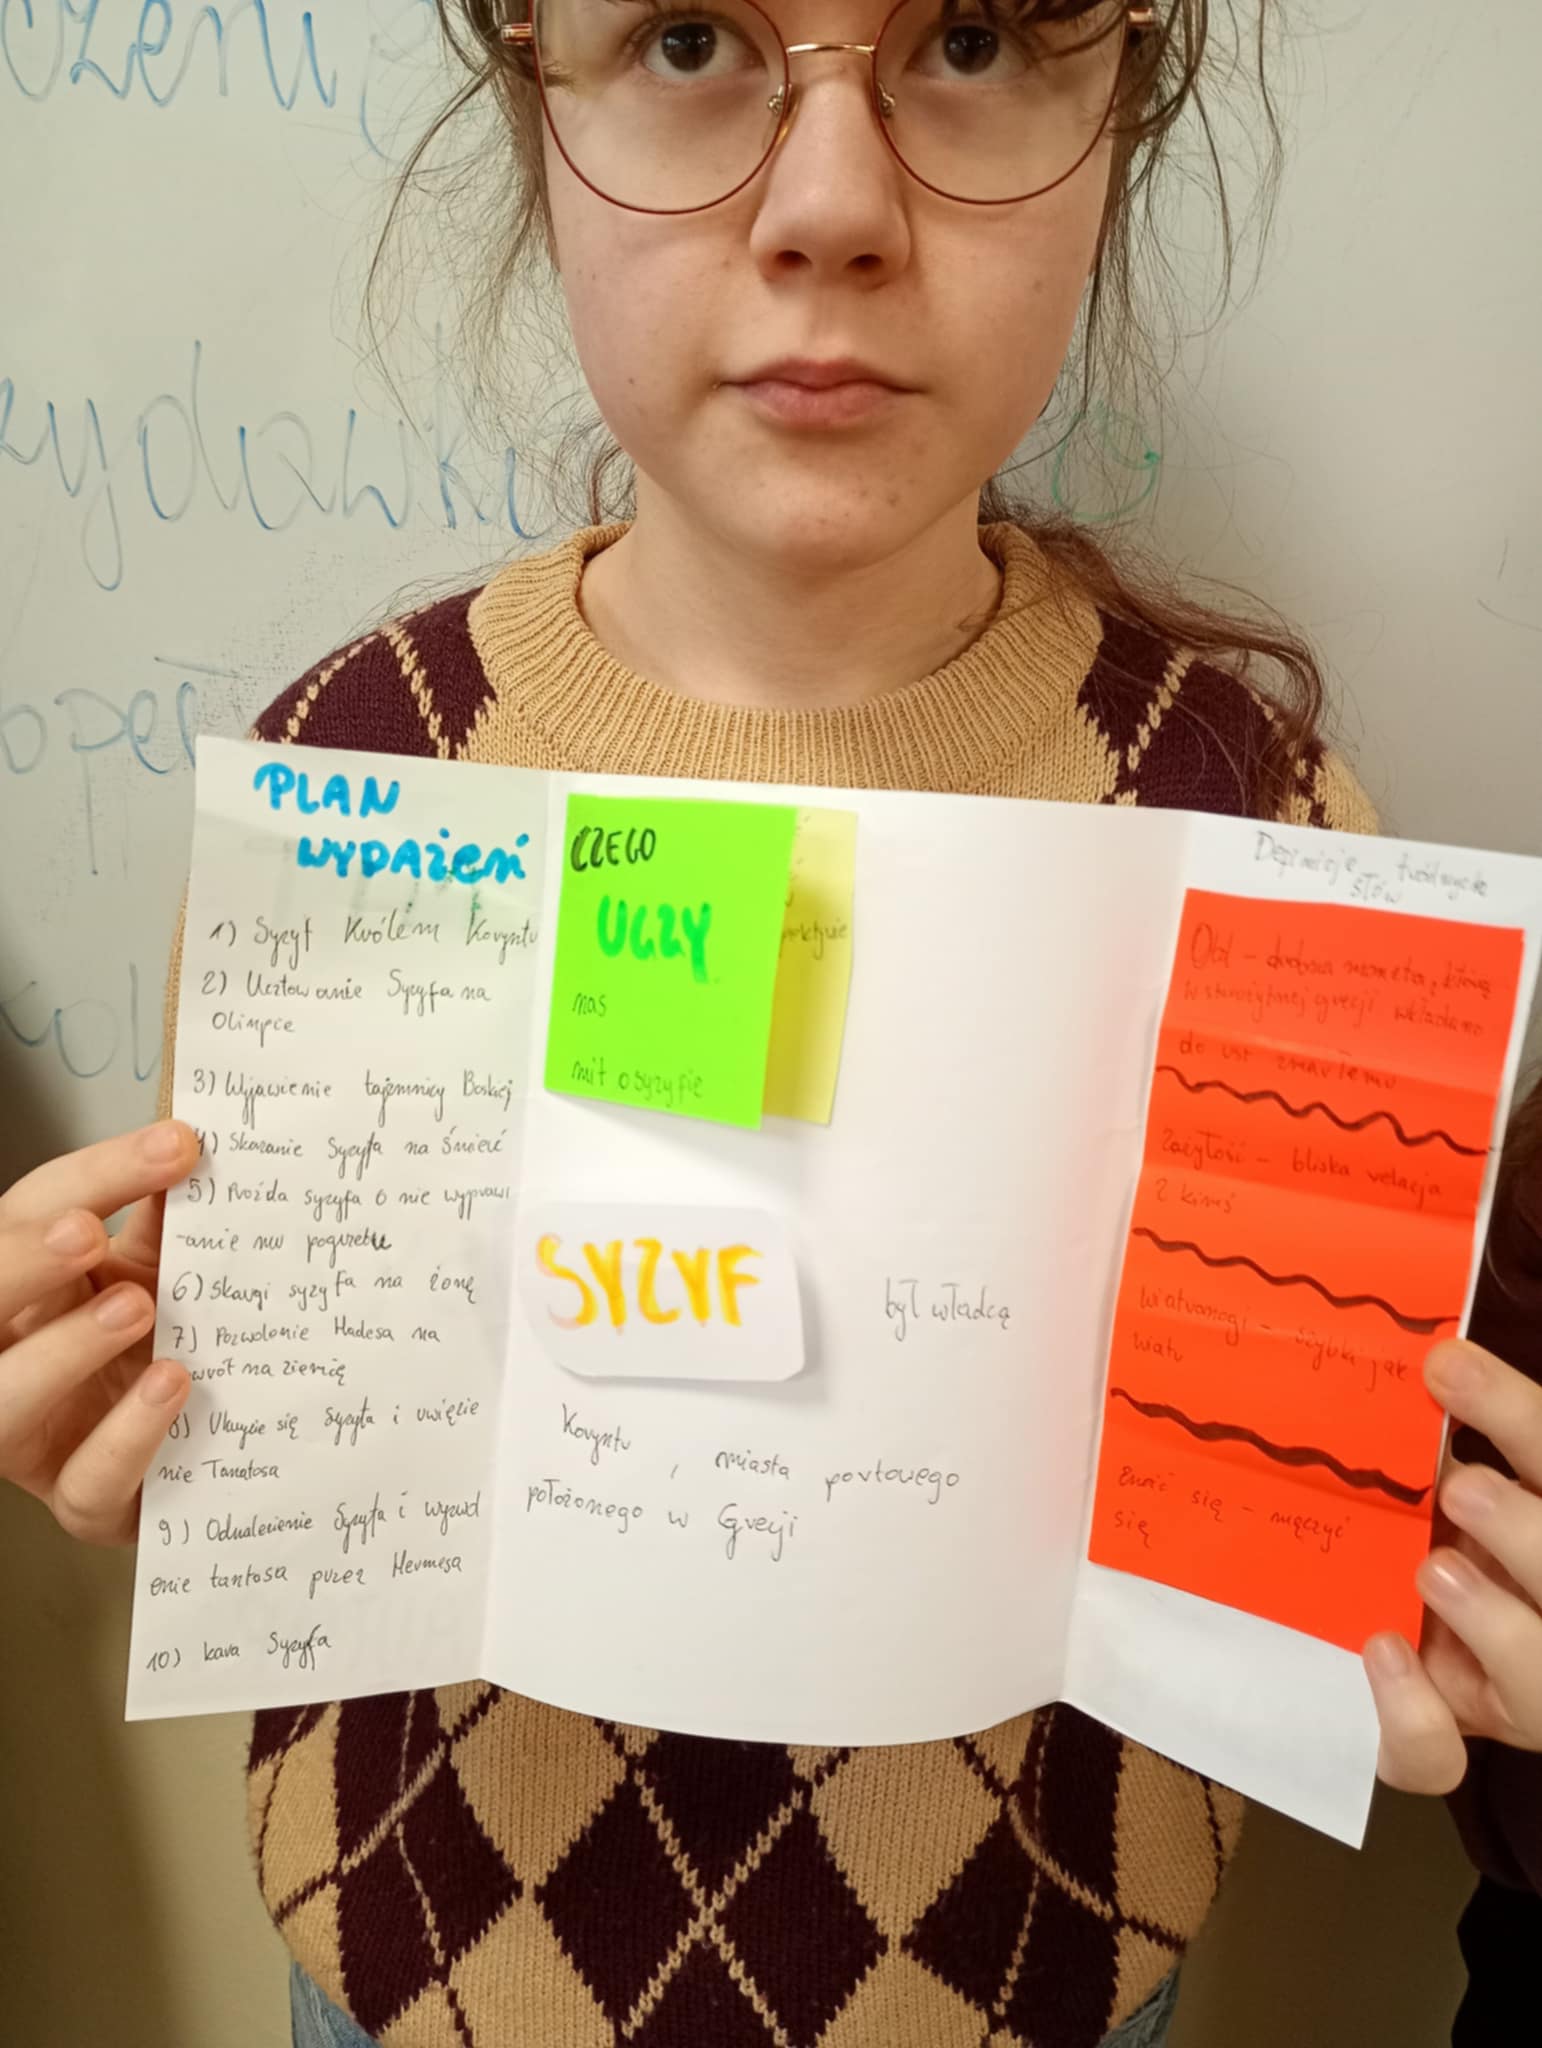 PLAN
WYDAŻEŃ
1) Syzyf Królem Koryntu
2) Ucztowanie Syzyfa na
Olimpie
3) Wyjawienie tajemnicy Boskiej
4) Skazanie Syzyfa na śmierć
5) Proźda syzyfa o nie wyprawi
-anie mu pogrzebu
6) Skargi syzyfa na żonę
7) Pozwolenie Hadesa na
wrót na ziemię
8) Ukrycie się Syzyfa i uwięzie
nie Tanatosa
9) Odnalezienie Syzyfa i wyzwol
enie tantosa przez Hermesa
10) kara Syzyfa
CZEGO
UCZY
nas
mit o syzyfie
SYZYF
był władcą
Koryntu , miasta portowego
położonego w Greji
Definicje trudnych
słów
Obol - drobna moneta, którą
w starożytnej grecji wkładano
do ust zmarłemu
Zażyłość - bliska relacja
z kimś
wiatronogi - szybki jak
wiatr
Znoić się - męczyć
się
czeni
zydawki